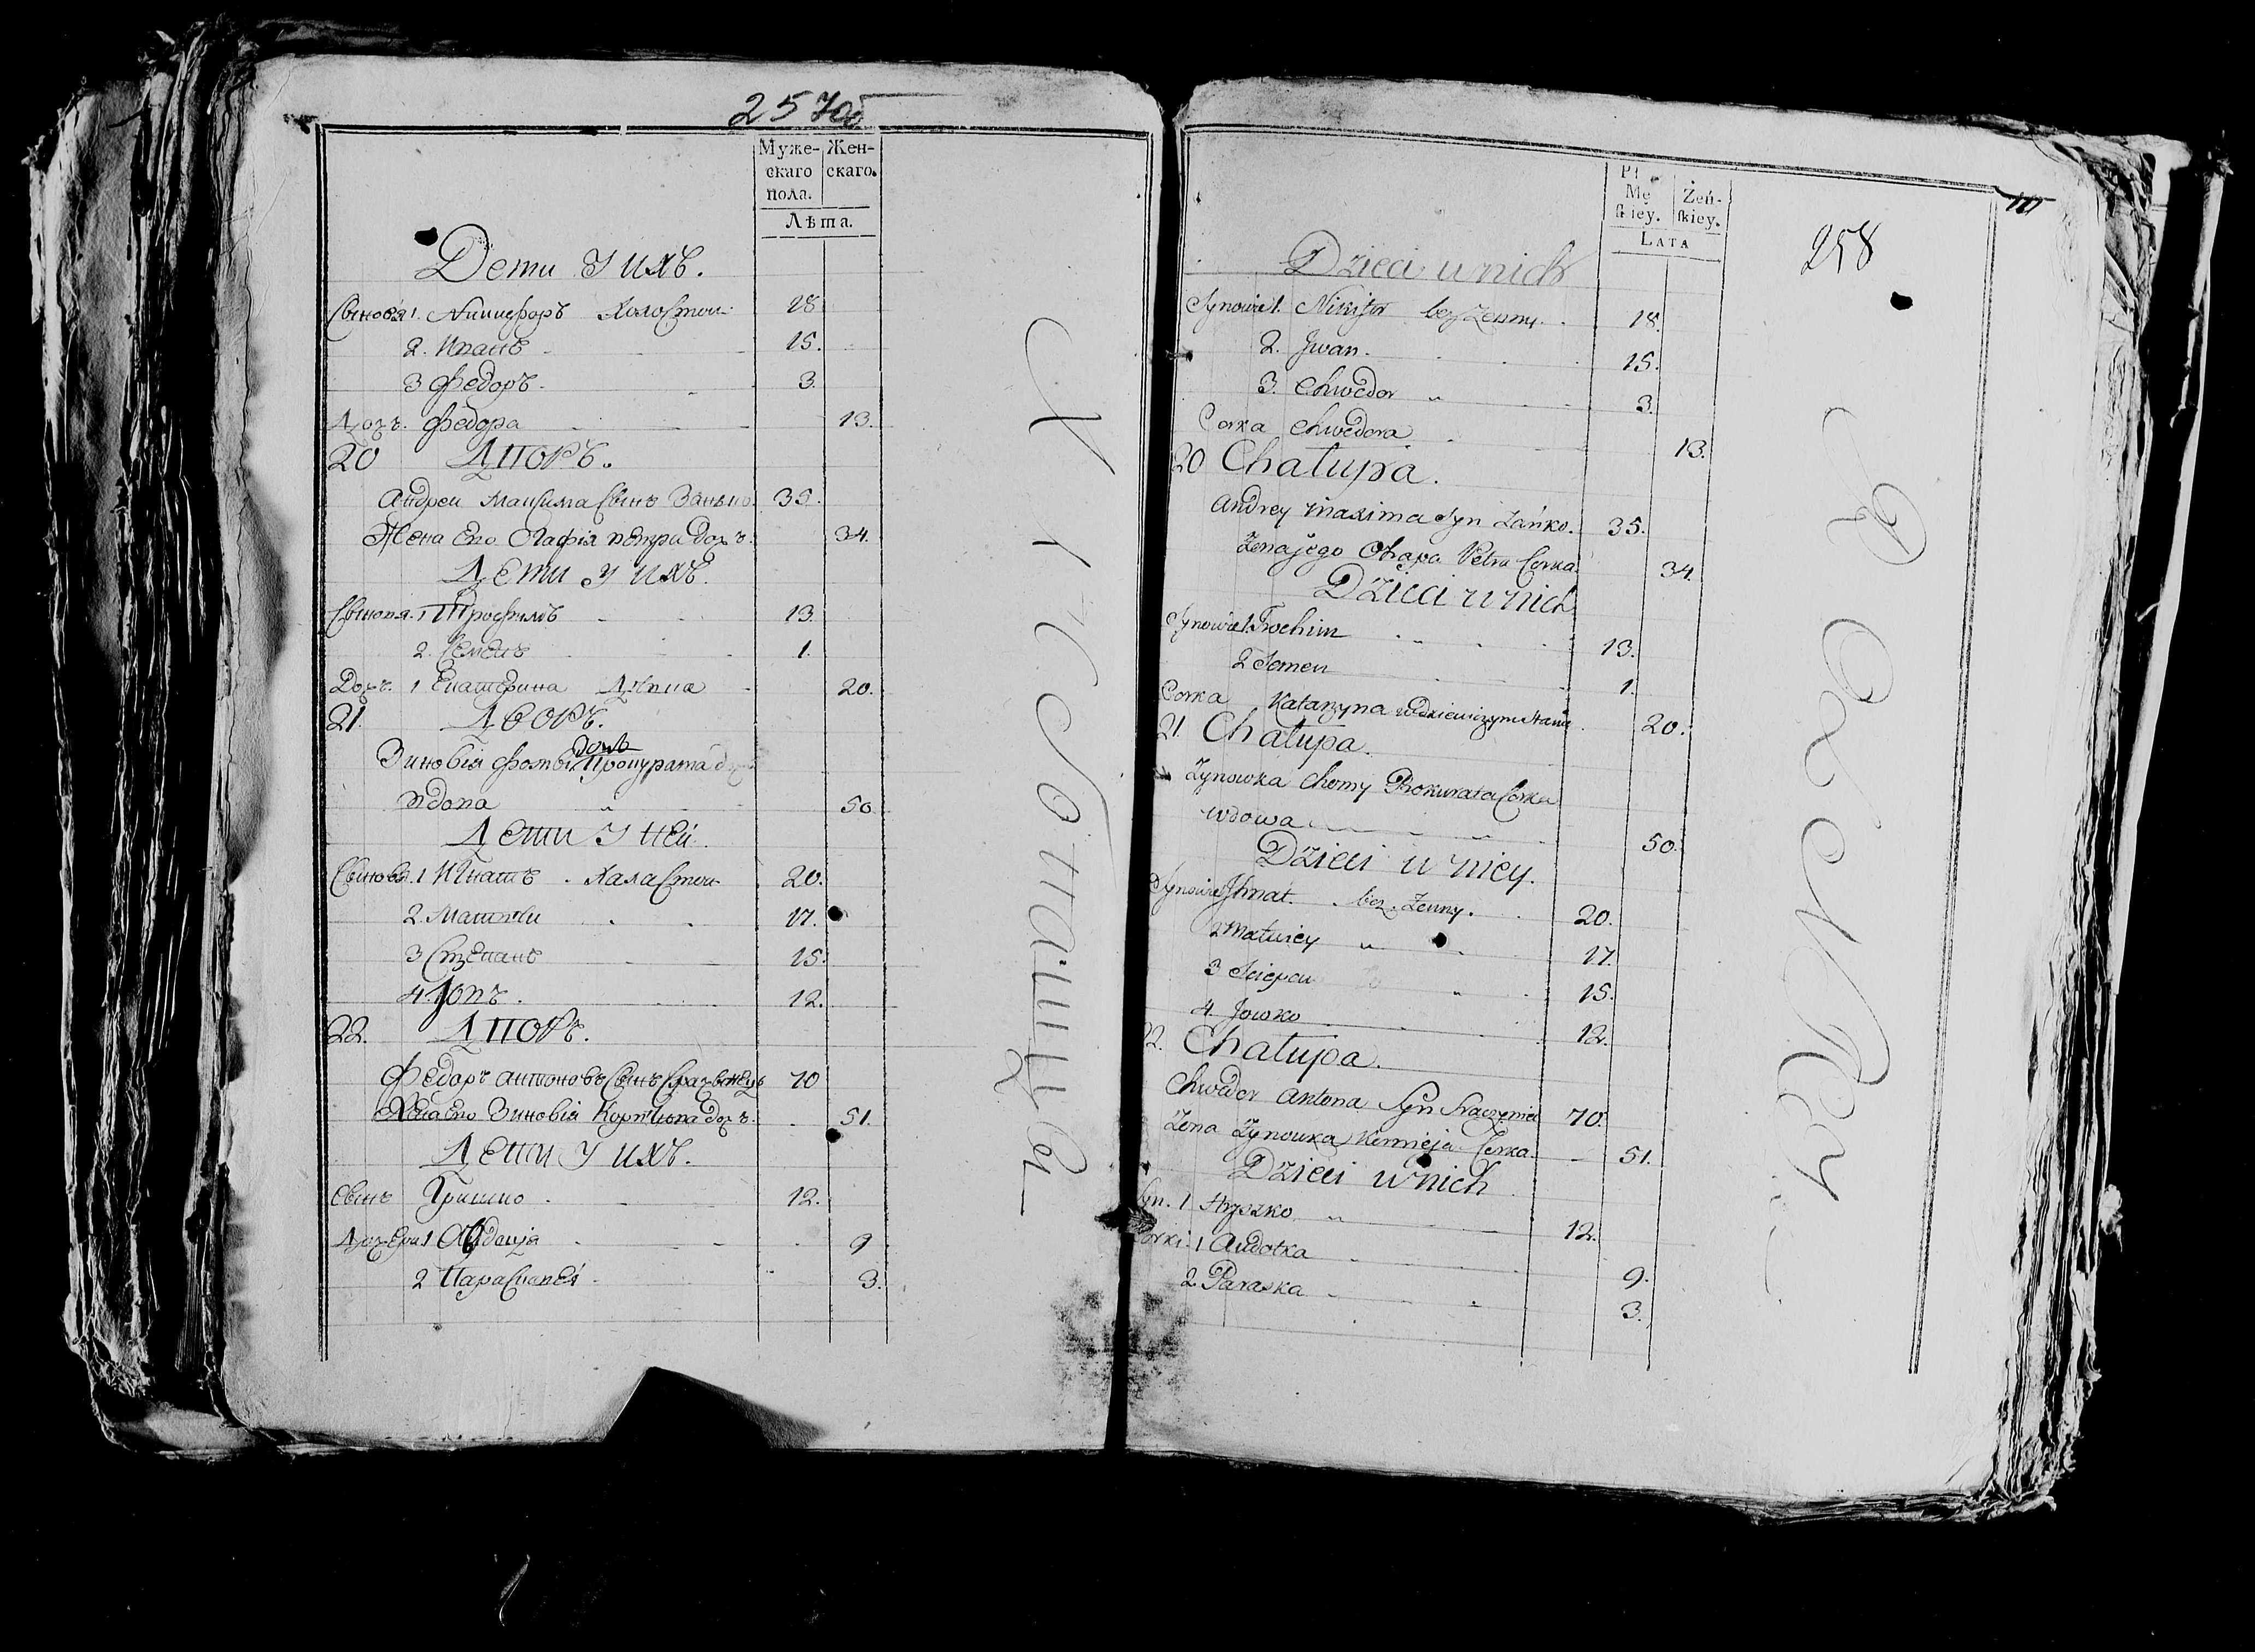 257об
Муже-
скаго
пола.
Жен-
скаго.
Лѣта.
Дети У ихъ.
Сыновя 1. Никифоръ Холостои 18
2. Иванъ 15.
3 Федоръ 3.
Дочъ. Федора 13.
20 Дворъ.
Андреи Максима Сынъ Занько 35.
Жена Его Огафія петри Дочъ. 34.
Дети у ихъ.
Сыновя. 1 Трофимъ 13.
2. Семенъ 1.
Дочъ. 1 Екатерина Дѣвка 20.
21. Дворъ.
дочь
Зиновія Фомы Прокурата
вдова 50
Дети У неи
Сыновя. 1 Игнатъ Халастои 20.
2. Матвеи 17.
3 Степанъ 15.
4 12.
22. Дворъ.
Федоръ антоновъ Сынъ 70
Жена Его Зиновія Корнѣева дочъ. 51.
Дети У ихъ.
Сынъ Гришко 12.
Дочери 1 Авдоця 9
2 Параскевея 3.
258
Mę
skiey.
Żeń-
skiey.
LATA
Dzieci u nich
Synowie 1. Nikifor bez Zenny. 18.
2. Jwan. 15.
3. Chwedor 3.
Corka Chwedora 13.
20 Chatupa.
Andrey Maxima Syn Zańko. 35.
Zena jego Ohapa Petra Corka. 34.
Dzieci u nich
Synowie 1. Trochim 13.
2 Semen 1.
Corka Katarzyna w dziewiczym stanie 20.
21. Chatupa.
Zynowka Chomy Prokurata Corka
wdowa 50.
Dzieci u niey.
Synowie Jhnat. bez Zenny. 20.
2 Matwiey 17.
3 Sciepan 15.
4. Jowko 12.
22. Chatupa.
Chwedor Antona Syn 70.
Zena Zynowka Kornieja Corka. 51.
Dzieci u nich
Syn. 1 Hryszko 12.
Corki. 1 Audotka 9.
2 Paraska 3.